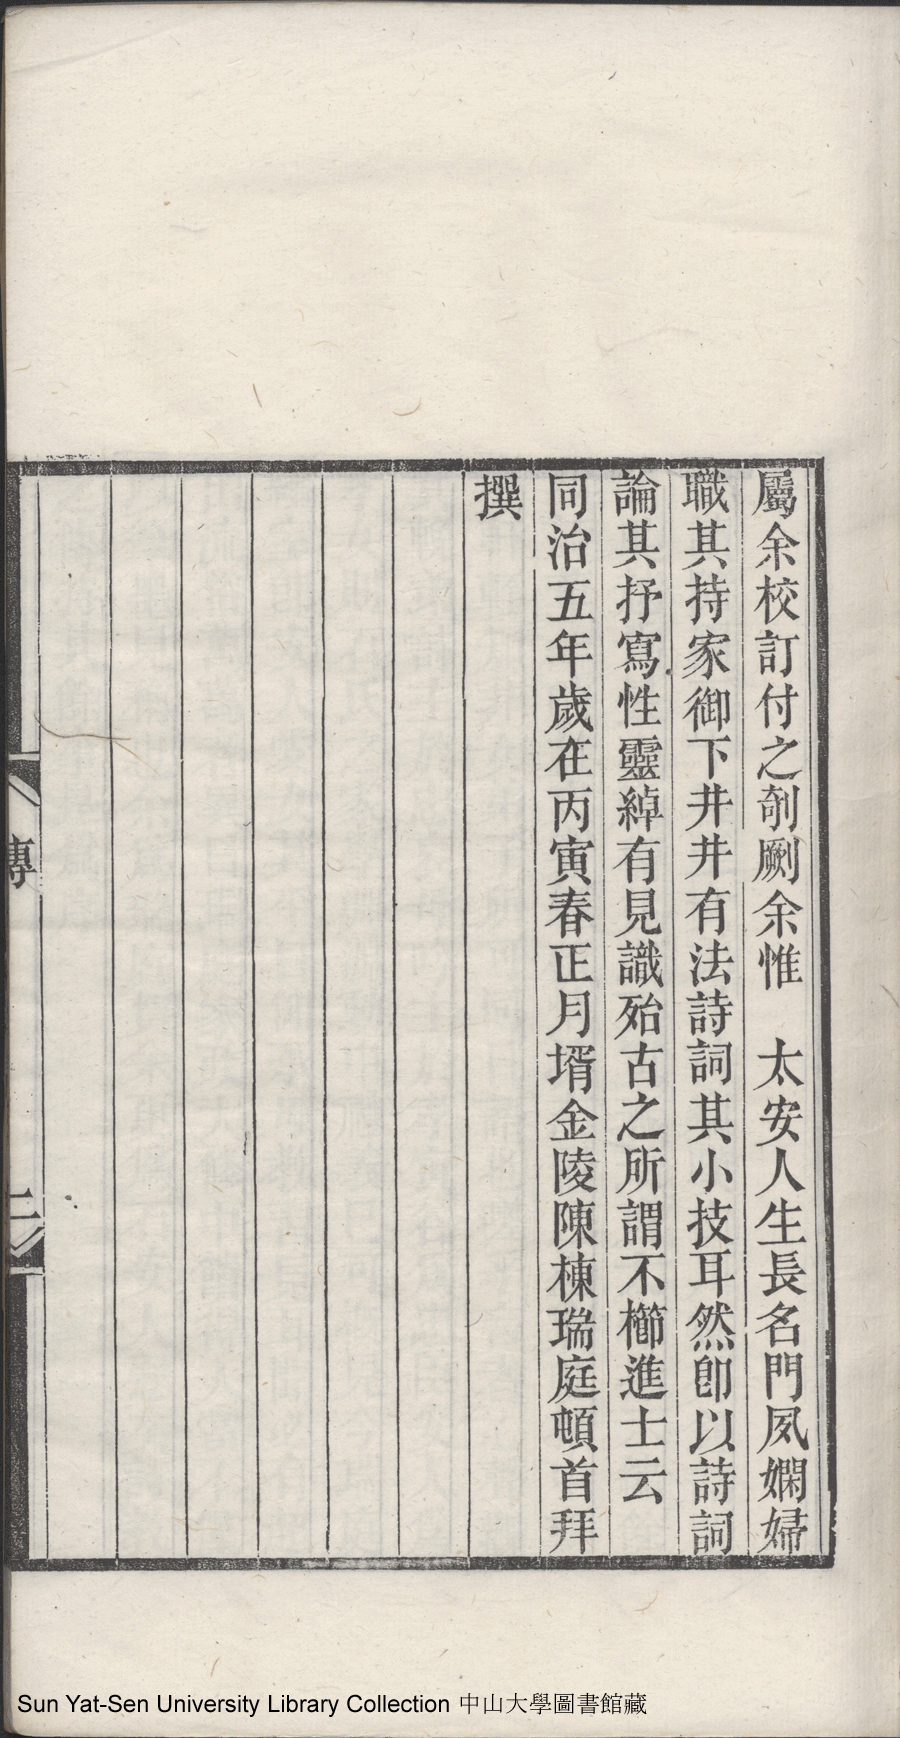 屬余校訂付之剞劂余惟　太安人生長名門夙嫻婦
職其持家御下井井有法詩詞其小技耳然卽以詩詞
論其抒寫性靈綽有見識殆古之所謂不櫛進士云
同治五年歲在丙寅春正月壻金陵陳棟瑞庭頓首拜
撰
傳
二
Sun Yat-Sen University Library Collection 中山大學圖書館藏